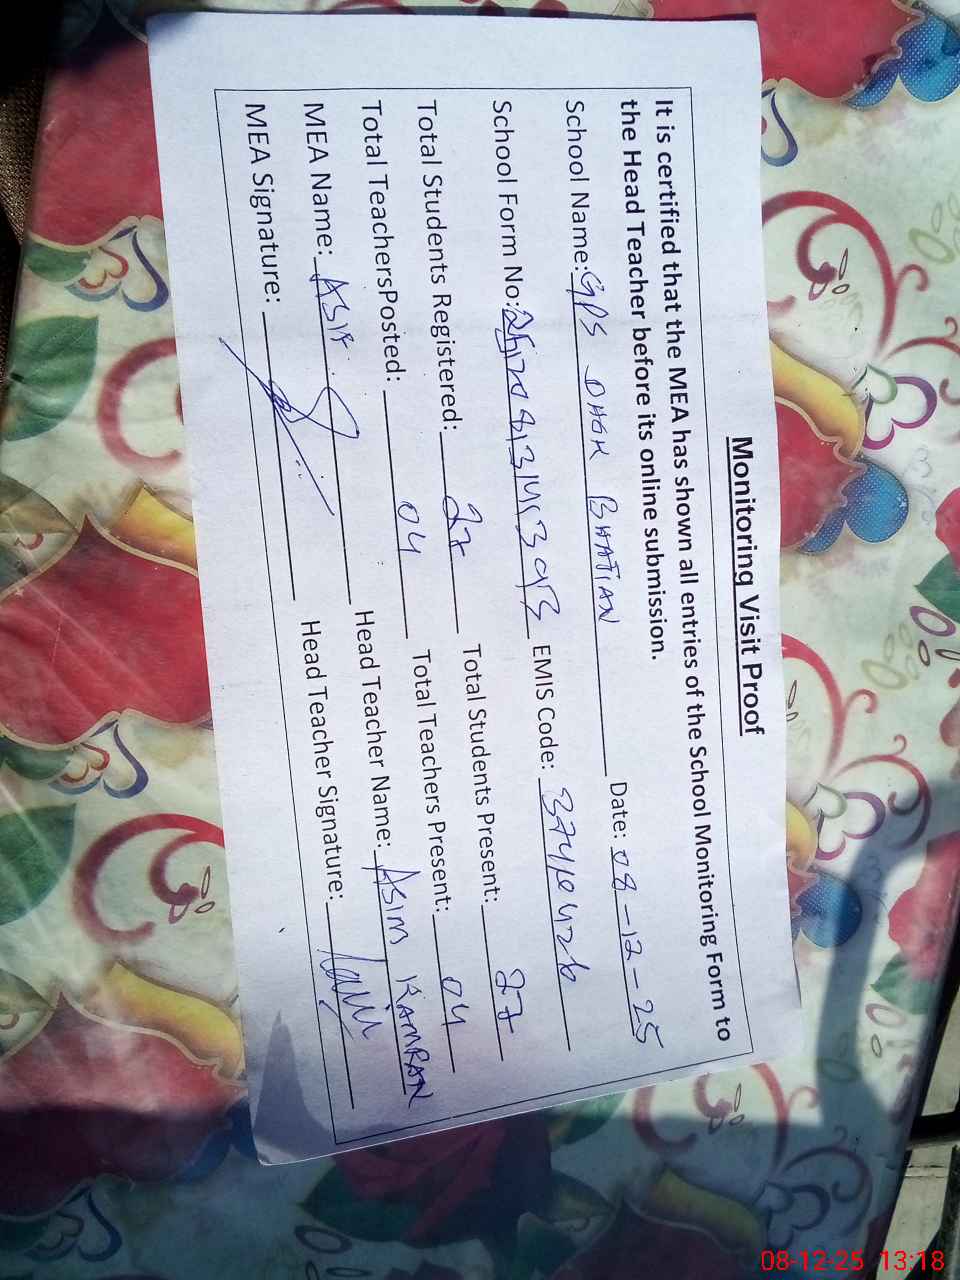 Monitoring Visit Proof
It is certified that the MEA has shown all entries of the School Monitoring Form to
the Head Teacher before its online submission.
School Name: GPS DHOK BHATIAN Date: 08-12-25
School Form No: EMIS Code: 37410426
Total Students Registered: 27 Total Students Present: 27
Total TeachersPosted: 04 Total Teachers Present: 04
MEA Name: ASIF Head Teacher Name: ASIM KAMRAN
MEA Signature: Head Teacher Signature:
08-12-25 13:18